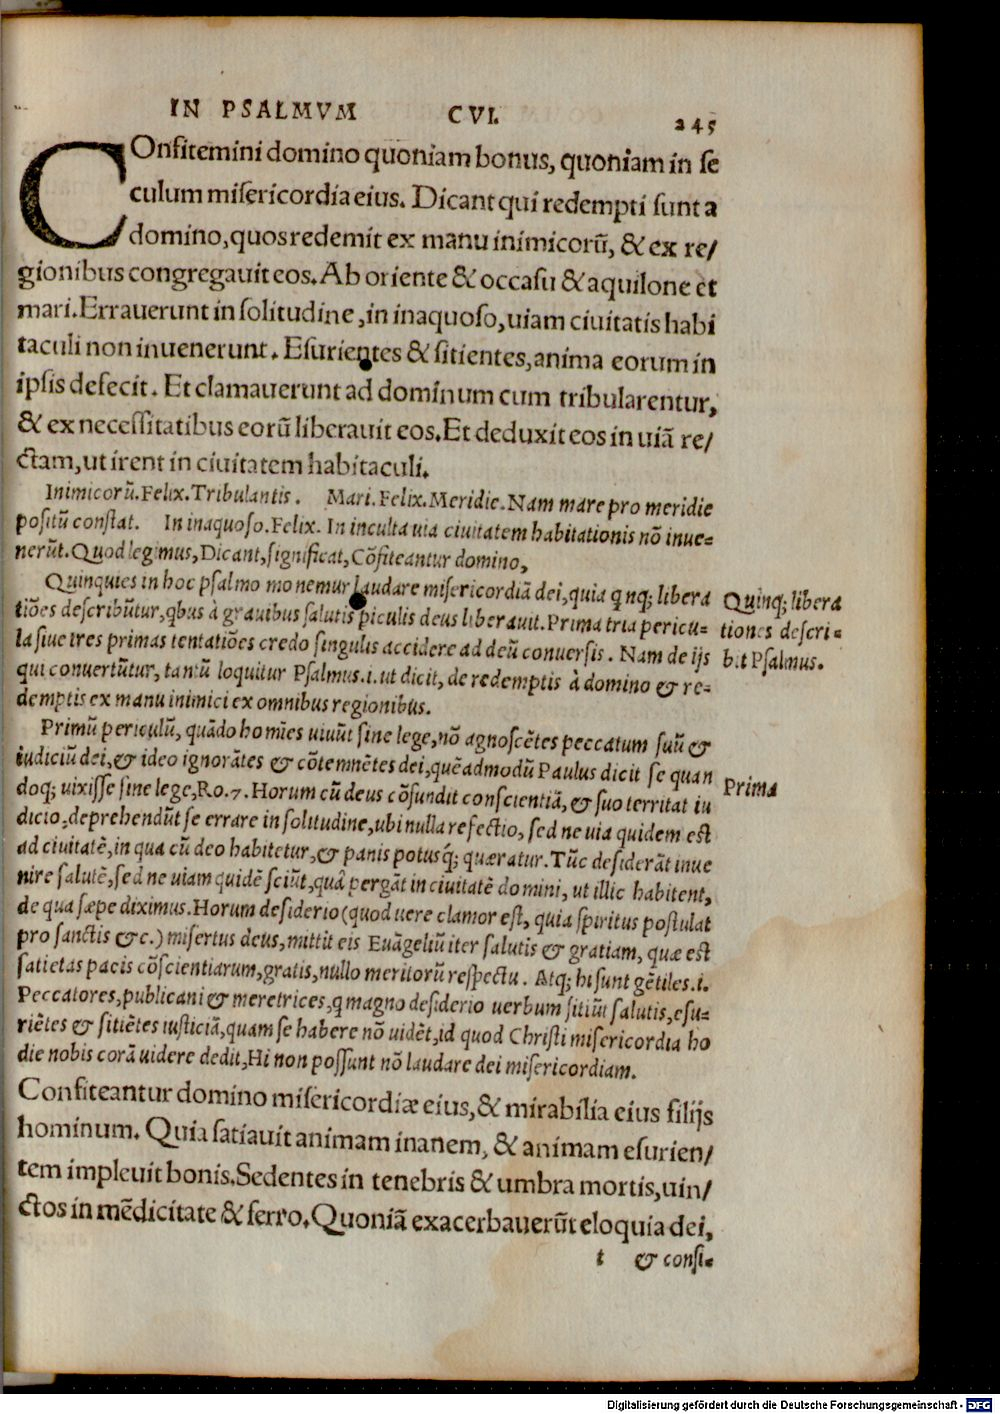 IN PSALMVM CVI. 245
COnfitemini domino quoniam bonus, quoniam in se
culum misericordia eius. Dicant qui redempti sunt a
domino, quos redemit ex manu inimicorũ, & ex re/
gionibus congregauit eos. Ab oriente & occasu & aquilone et
mari. Errauerunt in solitudine, in inaquoso, uiam ciuitatis habi
taculi non inuenerunt. Esurientes & sitientes, anima eorum in
ipsis defecit. Et clamauerunt ad dominum cum tribularentur,
& ex necessitatibus eorũ liberauit eos. Et deduxit eos in uiã re/
ctam, ut irent in ciuitatem habitaculi.
Inimicorũ. Felix. Tribulantis. Mari. Felix. Meridie. Nam mare pro meridie
positũ constat. In inaquoso. Felix. In inculta uia ciuitatem habitationis nõ inue=
nerũt. Quod legimus, Dicant, significat, Cõfiteantur domino,
Quinquies in hoc psalmo monemur laudare misericordiã dei, quia qnq; libera
tiões describũtur, qbus à grauibus salutis piculis deus liberauit. Prima tria pericu=
la siue tres primas tentatiões credo singulis accidere ad deũ conuersis. Nam de ijs
qui conuertũtur, tantũ loquitur Psalmus. i. ut dicit, de redemptis à domino & re=
demptis ex manu inimici ex omnibus regionibus.
Quinq; libera
tiones descri=
bit Psalmus.
Primũ periculũ, quãdo homĩes uiuũt sine lege, nõ agnoscẽtes peccatum suũ &
iudiciũ dei, & ideo ignorãtes & cõtemnẽtes dei, quẽadmodũ Paulus dicit se quan
doq; uixisse sine lege, Ro. 7. Horum cũ deus cõfundit conscientiã, & suo territat iu
dicio, deprehendũt se errare in solitudine, ubi nulla refectio, sed ne uia quidem est
ad ciuitatẽ, in qua cũ deo habitetur, & panis potusq́; quæratur. Tũc desiderãt inue
nire salutẽ, sed ne uiam quidẽ sciũt, quâ pergãt in ciuitatẽ domini, ut illic habitent,
de qua sæpe diximus. Horum desiderio (quod uere clamor est, quia spiritus postulat
pro sanctis &c.) misertus deus, mittit eis Euãgeliũ iter salutis & gratiam, quæ est
satietas pacis cõscientiarum, gratis, nullo meritorũ respectu. Atq; hi sunt gẽtiles. i.
Peccatores, publicani & meretrices, q magno desiderio uerbum sitiũt salutis, esu=
riẽtes & sitiẽtes iusticiã, quam se habere nõ uidẽt, id quod Christi misericordia ho
die nobis corã uidere dedit, Hi non possunt nõ laudare dei misericordiam.
Prima
Confiteantur domino misericordiæ eius, & mirabilia eius filijs
hominum. Quia satiauit animam inanem, & animam esurien/
tem impleuit bonis. Sedentes in tenebris & umbra mortis, uin/
ctos in mẽdicitate & ferro. Quoniã exacerbauerũt eloquia dei,
t & consi=
Digitalisierung gefördert durch die Deutsche Forschungsgemeinschaft - DFG